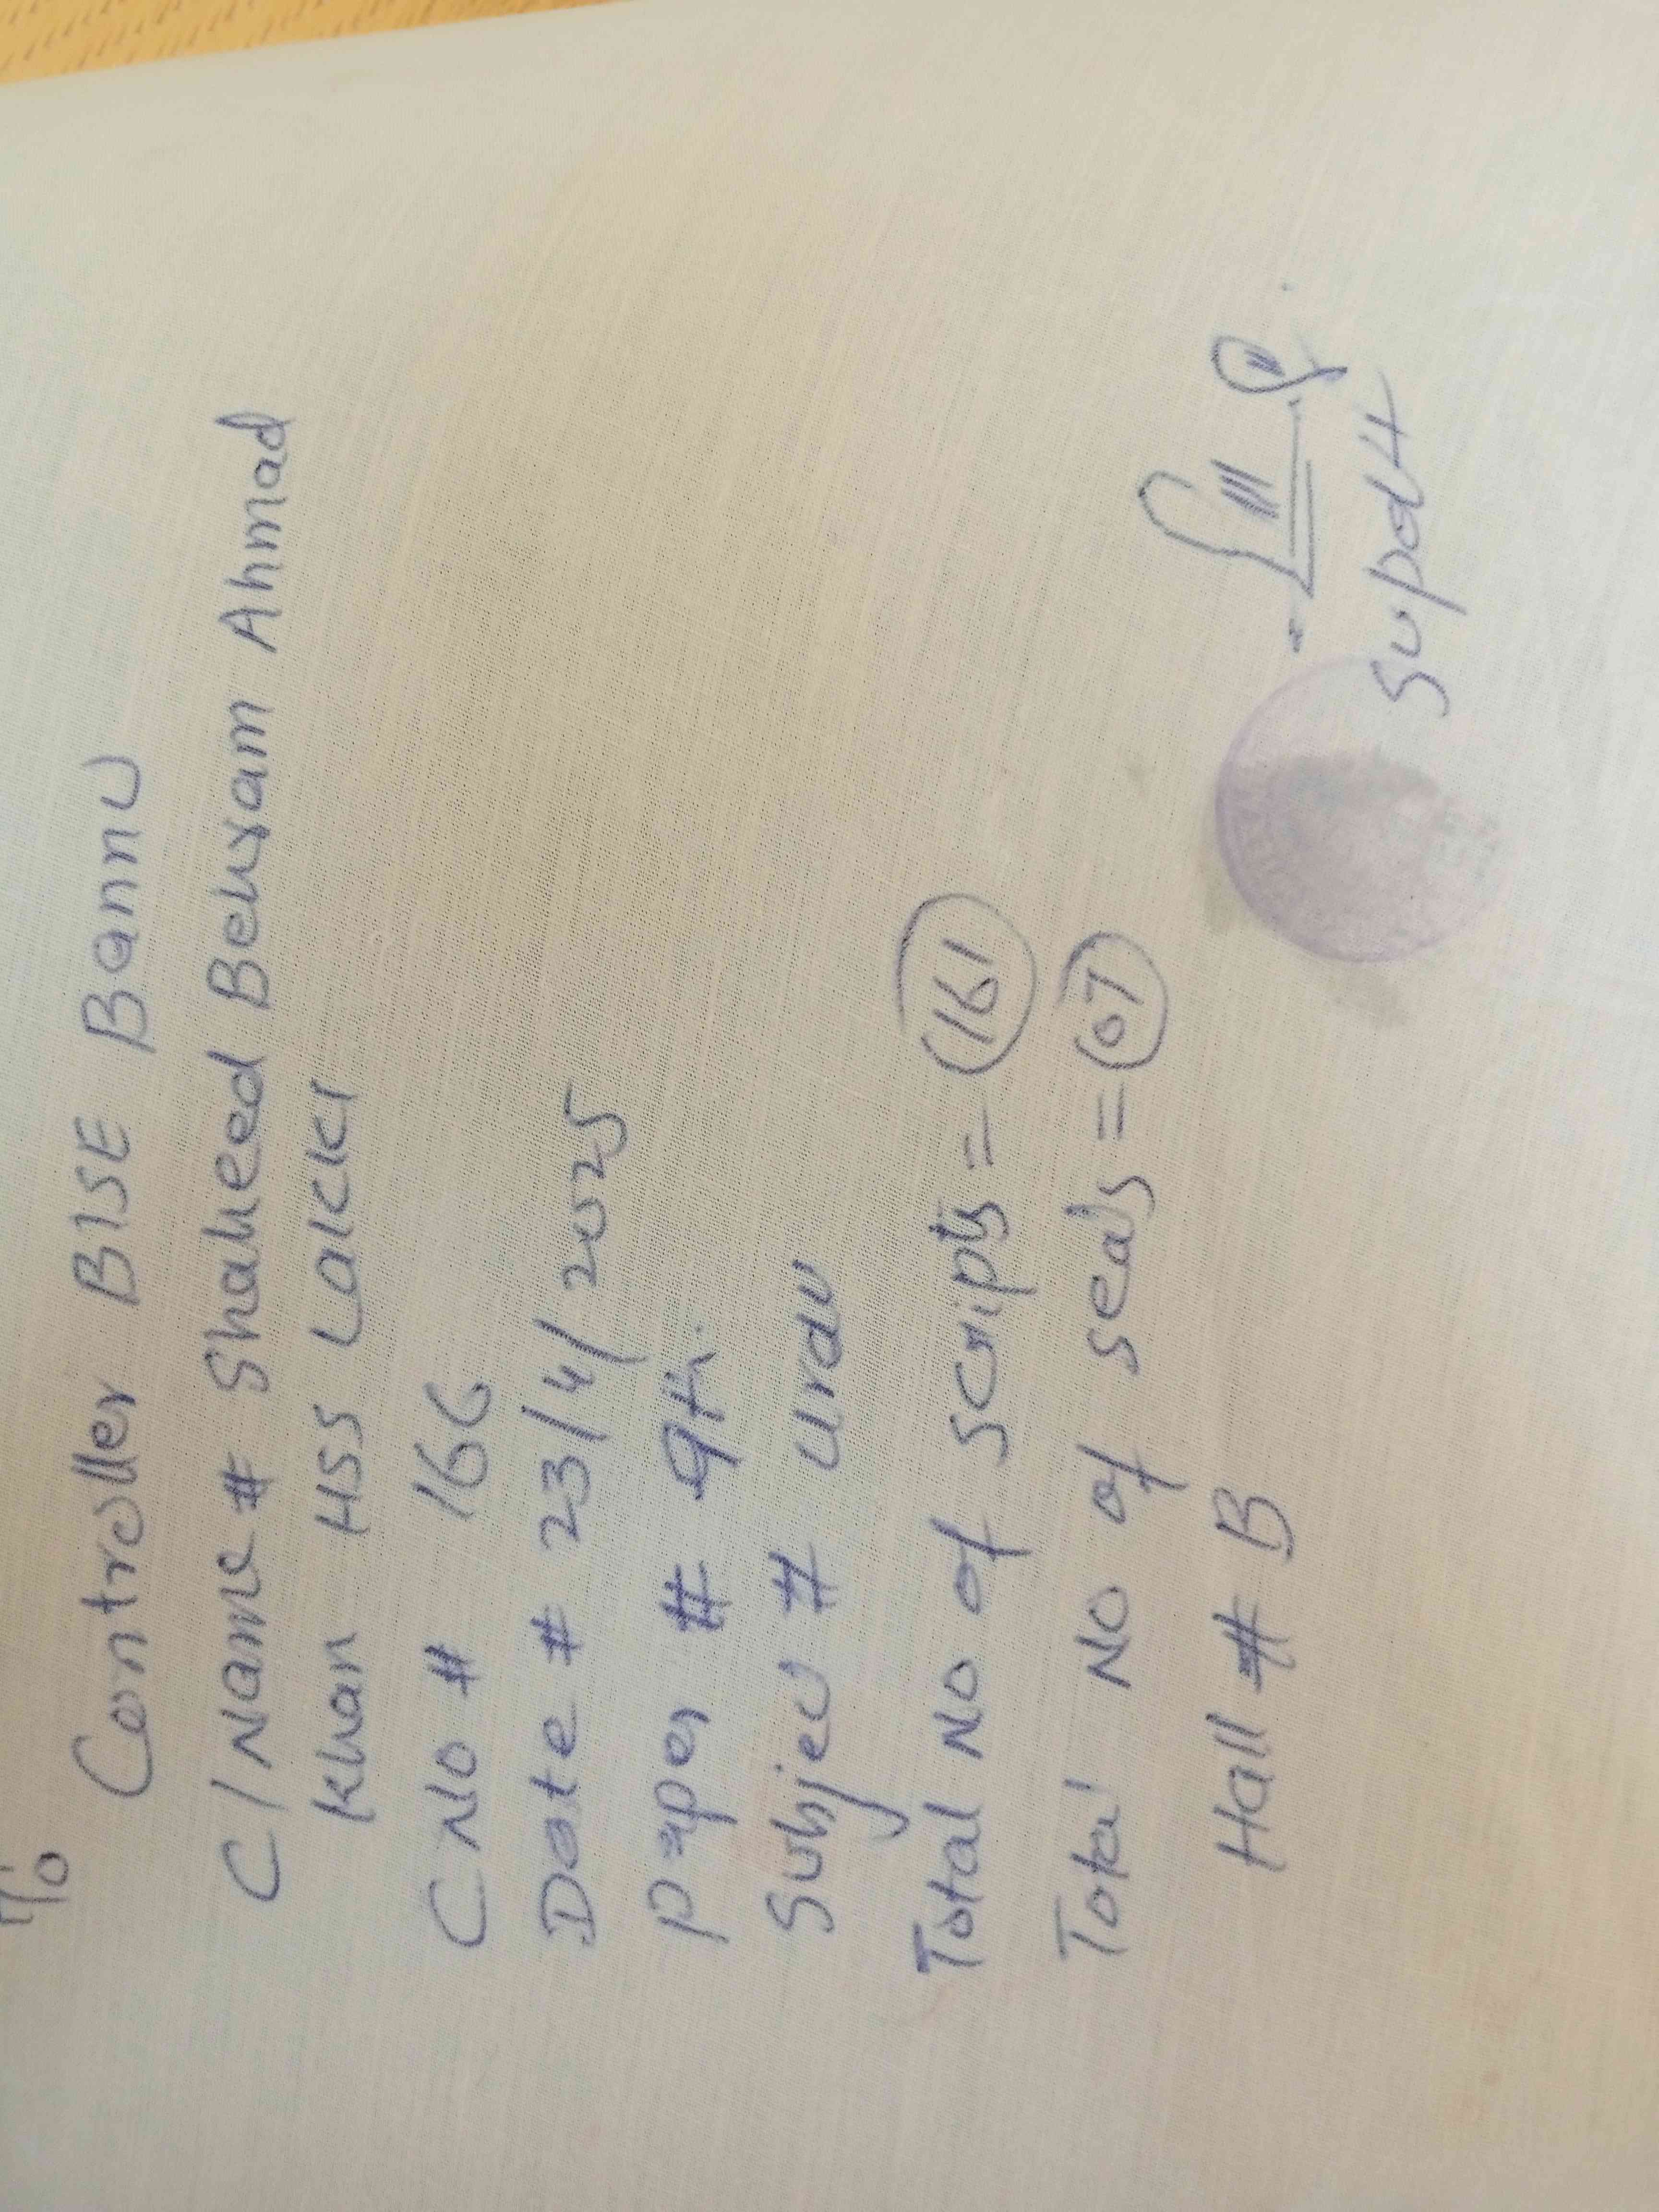 To
Controller BISE Bannu
C/Name # Shaheed Behram Ahmad
Khan HSS Lakki
C No # 166
Date # 23/4/2025
Paper # 9th
Subject # Urdu
Total No of scripts = 161
Total No of seals = 07
Hall # B
Supdtt